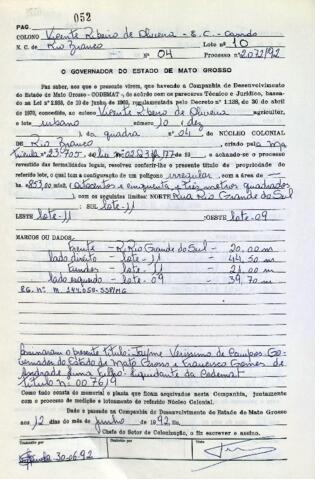 PAG. 052
COLONO Vicente Ribeiro de Oliveira - E.C. - Casado
N. C. de Rio Branco Lote nº 10
Nº 04 Processo nº 2072/92
O GOVERNADOR DO ESTADO DE MATO GROSSO
Faz saber, aos que a presente virem, que havendo a Companhia de Desenvolvimento
do Estado de Mato Grosso - CODEMAT -, de acordo com os pareceres Técnico e Jurídico, basea-
do na Lei nº
concedido, ao colono Vicente Ribeiro de Oliveira agricultor,
o lote urbano número 10 (dez)
da quadra nº 04 do NÚCLEO COLONIAL
DE Rio Branco criado pela Ma
trícula nº 23.705 e achando-se o processo
revestido das formalidades legais, resolveu conferir-lhe o presente título de propriedade do
referido lote, o qual tem a configuração de um polígono irregular com a área de
853,00 m2 (oitocentos e cinquenta e três metros quadrados)
com os seguintes limites: NORTE Rua Rio Grande do Sul
SUL lote - 11
LESTE lote - 11 OESTE lote - 09
MARCOS OU DADOS
frente - R. Rio Grande do Sul - 20,00 m
lado direito - lote - 11 - 44,50 m
fundos - lote - 11 - 21,00 m
lado esquerdo - lote - 09 - 39,70 m
RG. nº M. 244.050-SSP/MG
Assinaram o presente Título: Jayme Veríssimo de Campos - Go-
vernador do Estado de Mato Grosso e Francisco Gomes de
Andrade Lima Filho - Liquidante da Codemat
Título nº 007619
Como tudo consta do memorial e planta que ficam arquivados nesta Companhia, juntamente
com o processo de medição e loteamento do referido Núcleo Colonial.
Dado e passado na Companhia de Desenvolvimento do Estado de Mato Grosso
aos 12 dias do mês de Junho de 1992
Chefe do Setor de Colonização, o fiz escrever e assino.
30-06-92